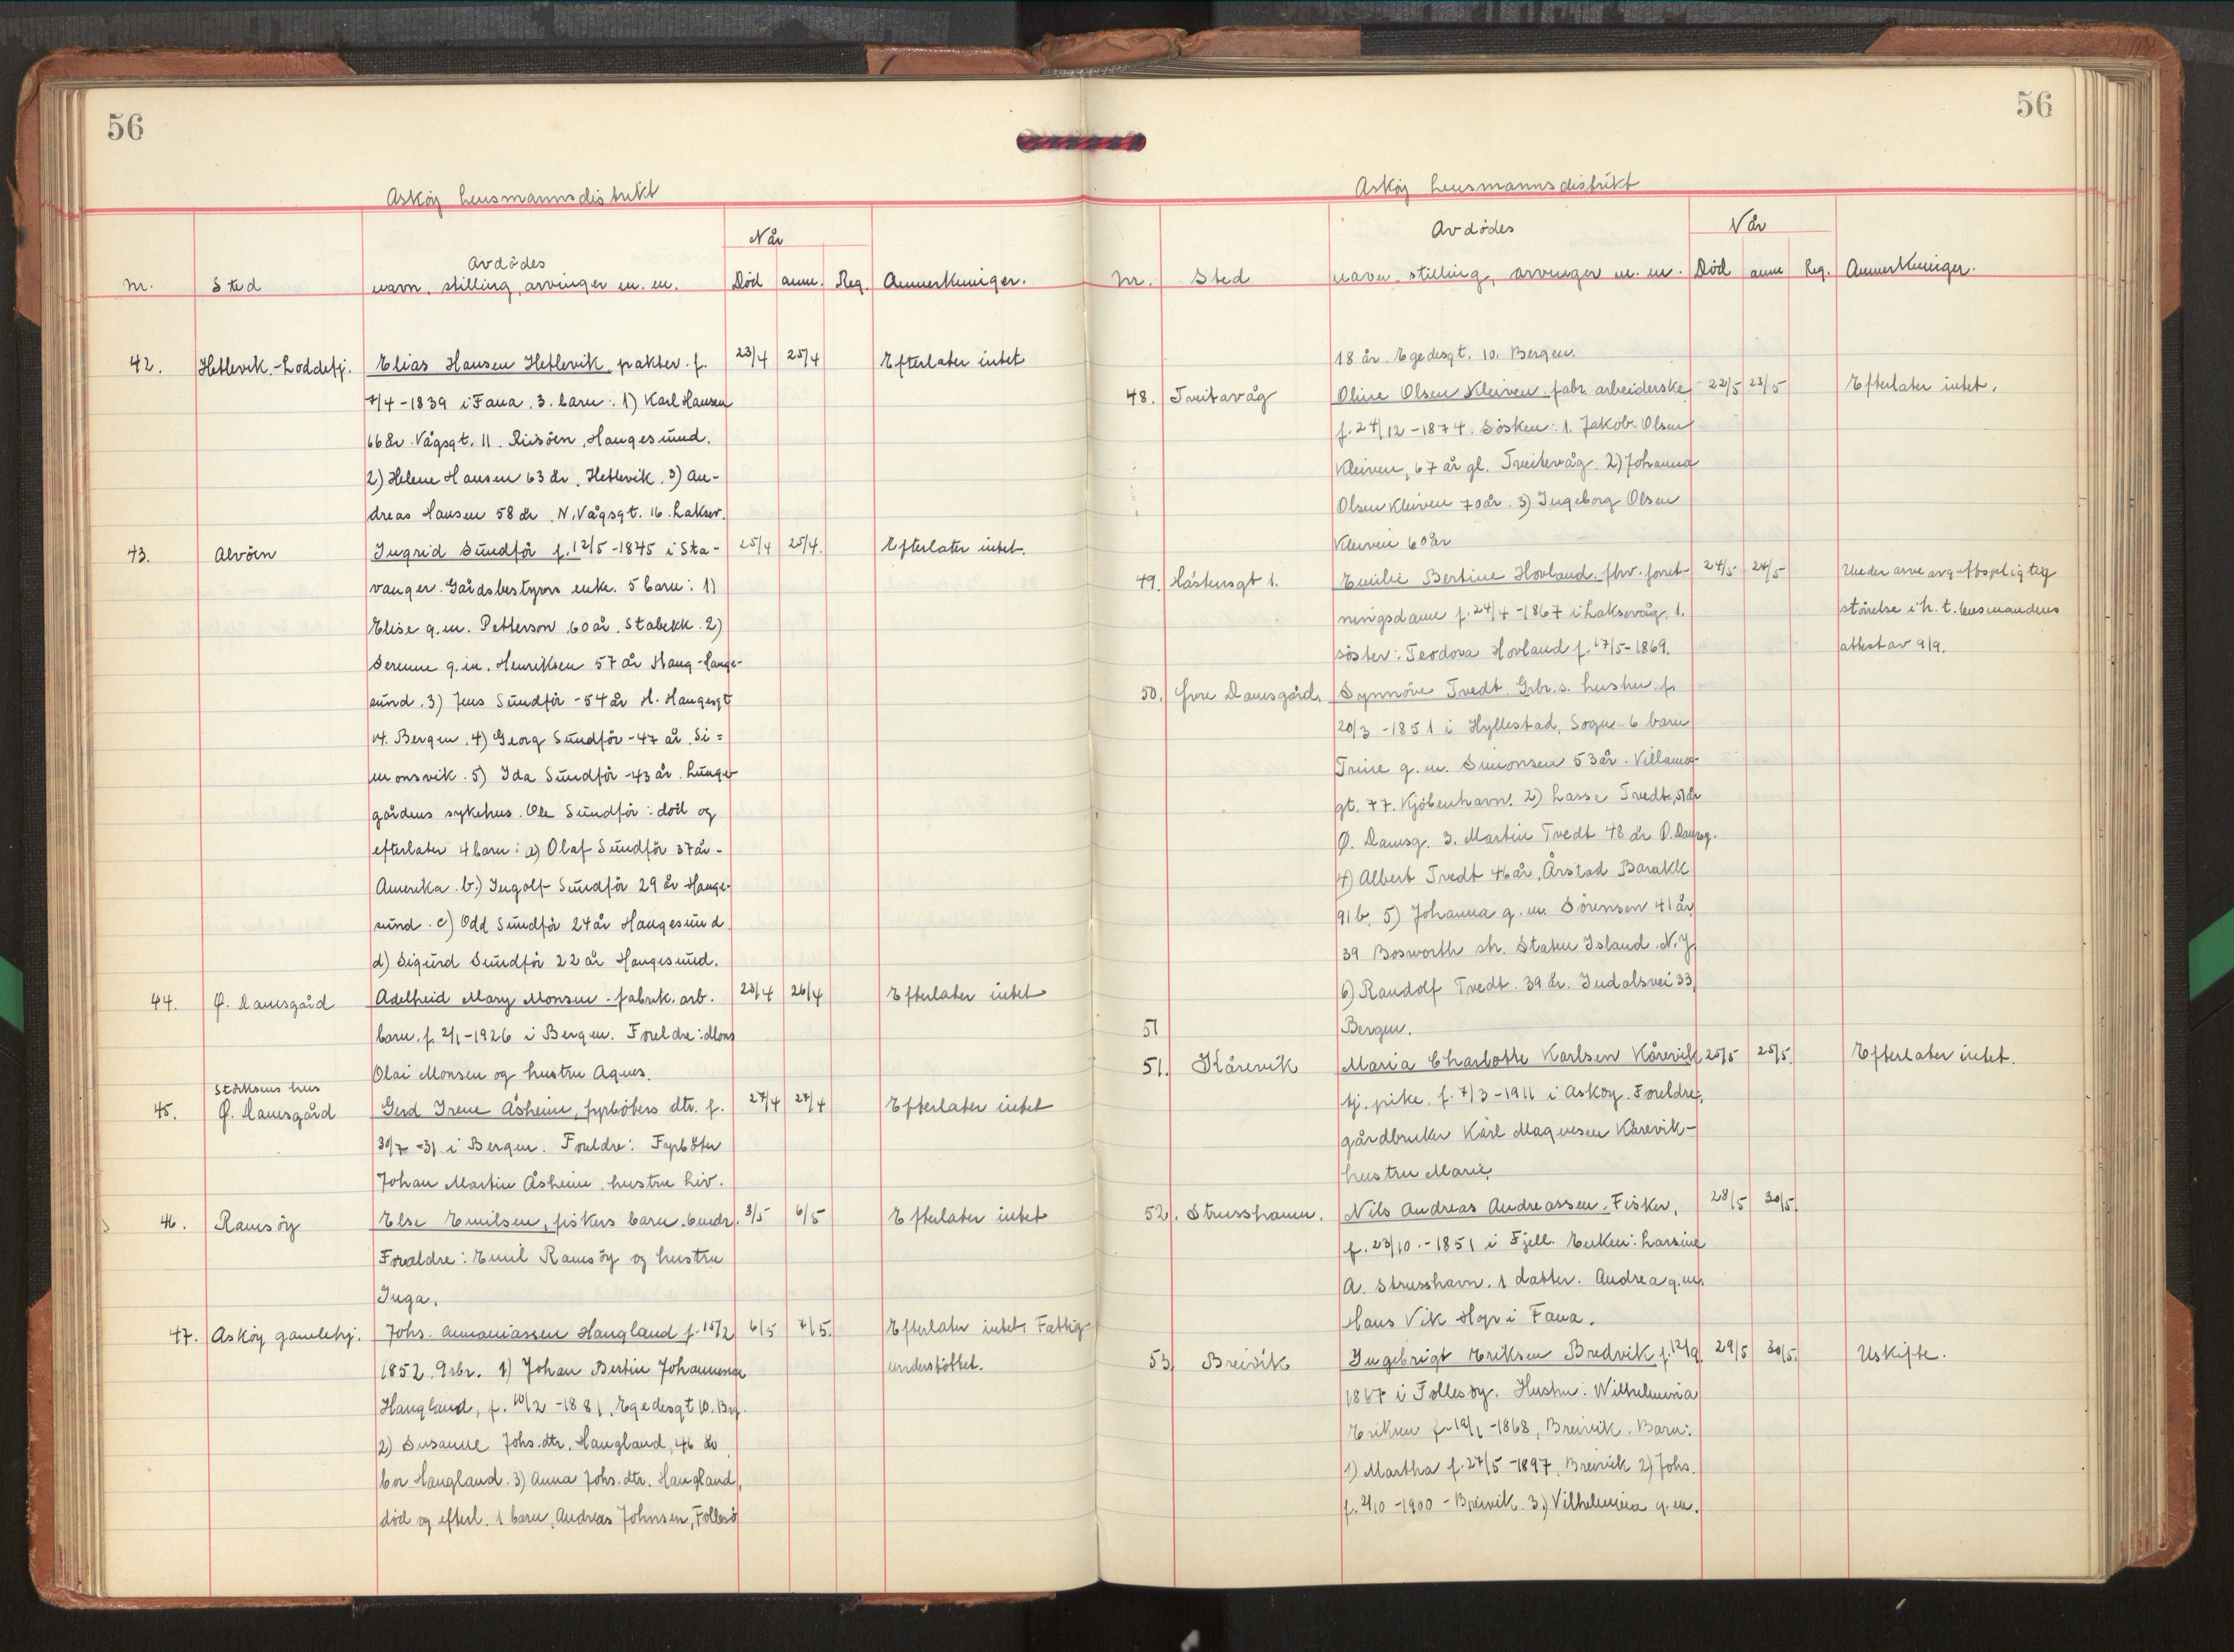 56
Askøy lensmannsdistrikt
Når
Avdødes
Nr. Sted navn, stilling, arvinger m. m. Død anm. Reg. Anmerkninger.
42. Hetlevik.-Loddefj. Elias Hansen Hetlevik, pakter. f. 23/4 25/4 Efterlater intet
7/4-1839 i Fana. 3. barn: 1) Karl Hansen
66 år. Vågsgt. 11. Risöen, Haugesund.
2) Helene Hansen 63 år, Hetlevik, 3) An-
dreas Hansen 58 år. N. Vågsgt. 16. Laksev.
43. Alvöen Ingrid Sundför f. 12/5-1845 i Sta- 25/4 25/4. Efterlater intet.
vanger. Gårdsbestyrers enke. 5 barn: 1)
Elise g.m. Petterson, 60 år, Stabekk. 2)
Serenne g.m. Henriksen 57 år Haug-Hauge-
sund, 3) Jens Sundför - 54 år H. Haugesgt
14. Bergen, 4) Georg Sundför - 47 år, Si=
monsvik. 5) Ida Sundför - 43 år. Lunge-
gårdens sykehus. Ole Sundför: död og
efterlater 4 barn: a) Olaf Sundför 37 år -
Amerika. b.) Ingolf Sundför 29 år Hauge-
sund. c) Odd Sundför 24 år Haugesund.
d) Sigurd Sundför 22 år Haugesund.
44. Ø. Damsgård Adelheid Mary Monsen. fabrik. arb. 23/4 26/4 Efterlater intet
barn. f. 2/1-1926 i Bergen. Foreldre: Mons
Olai Monsen og hustru Agnes.
Störksens hus
45. Ø. Damsgård Gerd Irene Åsheim, fyrböters dtr. f. 27/4 27/4 Efterlater intet
30/7-31 i Bergen. Foreldre: Fyrböter
Johan Martin Åsheim, hustru Liv.
46. Ramsöy Else Emilsen, fiskers barn. 6 mdr. 3/5 6/5 Efterlater intet
Foreldre: Emil Ramsöy og hustru
Inga.
47. Asköy gamlehj. Johs. Annaniassen Haugland f. 15/2 6/5 7/5. Efterlater intet. Fattig-
1852. Grbr. 1) Johan Bertin Johannesen understöttet.
Haugland, f. 10/2-1881, Egedesgt 10. Brg.
2) Susanne Johs.dtr. Haugland, 46 år
bor Haugland. 3) Anna Johs.dtr. Haugland,
död og efterl. 1 barn, Andreas Johnsen, Follesö
56
Asköy lensmannsdistrikt
Avdödes Når
Nr. Sted navn, stilling, arvinger m. m. Död anm Reg. Anmerkninger.
18 år. Egedesgt. 10. Bergen.
48. Tveitavåg Oline Olsen Kleiven. fabr. arbeiderske 22/5 23/5 Efterlater intet.
f. 24/12-1874. Sösken: 1. Jakob Olsen
Kleiven, 67 år gl. Tveitevåg. 2) Johanna
Olsen Kleiven 70 år. 3) Ingeborg Olsen
Kleiven 60 år
49. Håstensgt 1. Emilie Bertine Hovland. fhv. forret- 24/5 24/5 Under arveavgiftspligtig
ningsdame f. 24/4-1867 i Laksevåg. 1. störelse i h. t. lensmandens
söster: Teodora Hovland f. 17/5-1869. attest av 9/9.
50. Övre Damsgård. Synnöve Tvedt. Grbr.s. hustru. f.
20/3-1851 i Hyllestad, Sogn. 6 barn
Trine g.m. Simonsen 53 år. Villamos-
gt. 77. Kjöbenhavn. 2) Lasse Tvedt, 51 år
Ö. Damsg. 3. Martin Tvedt 48 år Ö. Damsg.
4) Albert Tvedt 46 år, Årstad Barakk
91 b. 5) Johanna g.m. Sörensen 41 år
39 Bosworth str. Staten Island. N.J.
6) Randolf Tvedt. 39 år. Indalsvei 33
51 Bergen.
51. Kårevik Maria Charlotte Karlsen Kårevik 25/5 25/5. Efterlater intet.
tj.pike. f. 7/3-1911 i Asköy. Foreldre,
gårdbruker Karl Magnesen Kårevik-
hustru Marie.
52. Strusshamn. Nils Andreas Andreassen, Fisker, 28/5 30/5
f. 23/10.-1851 i Fjell. Enken: Larsine
A. Strusshavn. 1 datter. Andrea g.m.
Hans Vik Hop i Fana.
53 Breivik Ingebrigt Eriksen Bredvik f. 12/9 29/5 30/5. Uskifte.
1867 i Follesöy. Hustru: Wilhelmina
Eriksen f. 19/1-1868, Breivik. Barn:
1) Martha f. 27/5-1897, Breivik 2) Johs.
f. 2/10-1900 - Breivik. 3.) Vilhelmina g.m.